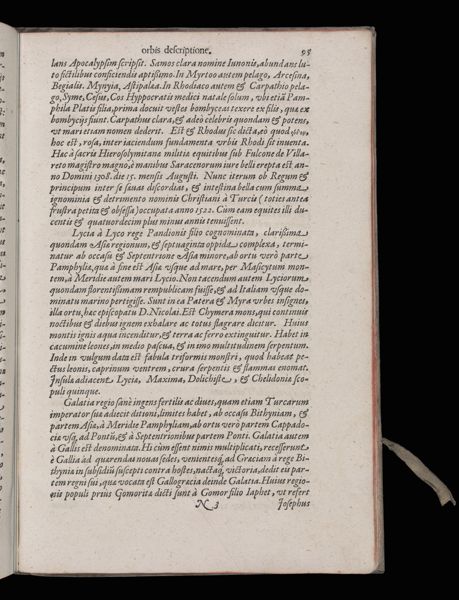 orbis descriptione. 98
lans Apocalypsim scripsit. Samos clara nomine Iunonis, abundans lu-
to fictilibus conficiendis aptissimo. In Myrtoo autem pelago, Arcesina,
Begialis. Mynyia, Astipalæa. In Rhodiaco autem & Carpathio pela-
go, Syme, Cesus, Cos Hyppocratis medici natale solum, vbi etiã Pam-
phila Platis filia, prima docuit vestes bombyceas texere ex filis, quæ ex
bombycijs fiunt. Carpathus clara, & adeò celebris quondam & potens,
vt mari etiam nomen dederit. Est & Rhodus sic dicta, eò quod
hoc est, rosa, inter iaciendum fundamenta vrbis Rhodi sit inuenta.
Hac à sacris Hierosolymitana militia equitibus sub Fulcone de Villa-
reto magistro magno, è manibus Saracenorum iure belli erepta est an-
no Domini 1308. die 15. mensis Augusti. Nunc iterum ob Regum &
principum inter se sæuas discordias, & intestina bella cum summa
ignominia & detrimento nominis Christiani à Turcis (toties antea
frustra petita & obsessa) occupata anno 1522. Cùm eam equites illi du-
centis & quatuordecim plus minus annis tenuissent.
Lycia à Lyco rege Pandionis filio cognominata, clarissima
quondam Asiæ regionum, & septuaginta oppida complexa, termi-
natur ab occasu & Septentrione Asia minore, ab ortu verò parte
Pamphyliæ, quæ à sine est Asiæ vsque ad mare, per Masicytum mon-
tem, à Meridie autem mari Lycio. Non tacendum autem Lyciorum
quondam florentissimam rempublicam fuisse, & ad Italiam vsque do-
minatu marino pertigisse. Sunt in ea Patera & Myra vrbes insignes,
illa ortu, hæc episcopatu D. Nicolai. Est Chymera mons, qui continuis
noctibus & diebus ignem exhalare ac totus flagrare dicitur. Huius
montis ignis aqua incenditur, & terra ac ferro extinguitur. Habet in
cacumine leones, in medio pascua, & in imo multitudinem serpentum.
Inde in vulgum data est fabula triformis monstri, quod habeat pe-
ctus leonis, caprinum ventrem, crura serpentis & flammas euomat.
Insula adiacent Lycia, Maxima, Dolichiste, & Chelidonia sco-
puli quinque.
Galatia regio sanè ingens fertilis ac diues, quam etiam Turcarum
imperator suæ adiecit ditioni, limites habet, ab occasu Bithyniam, &
partem Asiæ, à Meridie Pamphyliam, ab ortu verò partem Cappado-
ciæ vsq́, ad Pontũ, & à Septentrionibus partem Ponti. Galatia autem
à Gallis est denominata. Hi cùm essent nimis multiplicati, recesserunt
è Gallia ad quærendas nouas sedes, venientesq́, ad Graciam à rege Bi-
thynia in subsidiũ suscepti contra hostes, nactaq́, victoria, dedit eis par-
tem regni sui, quæ vocata est Gallogracia deinde Galatia. Huius regio-
nis populi prius Gomorita dicti sunt à Gomor filio Iaphet, vt refert
N 3 Josephus